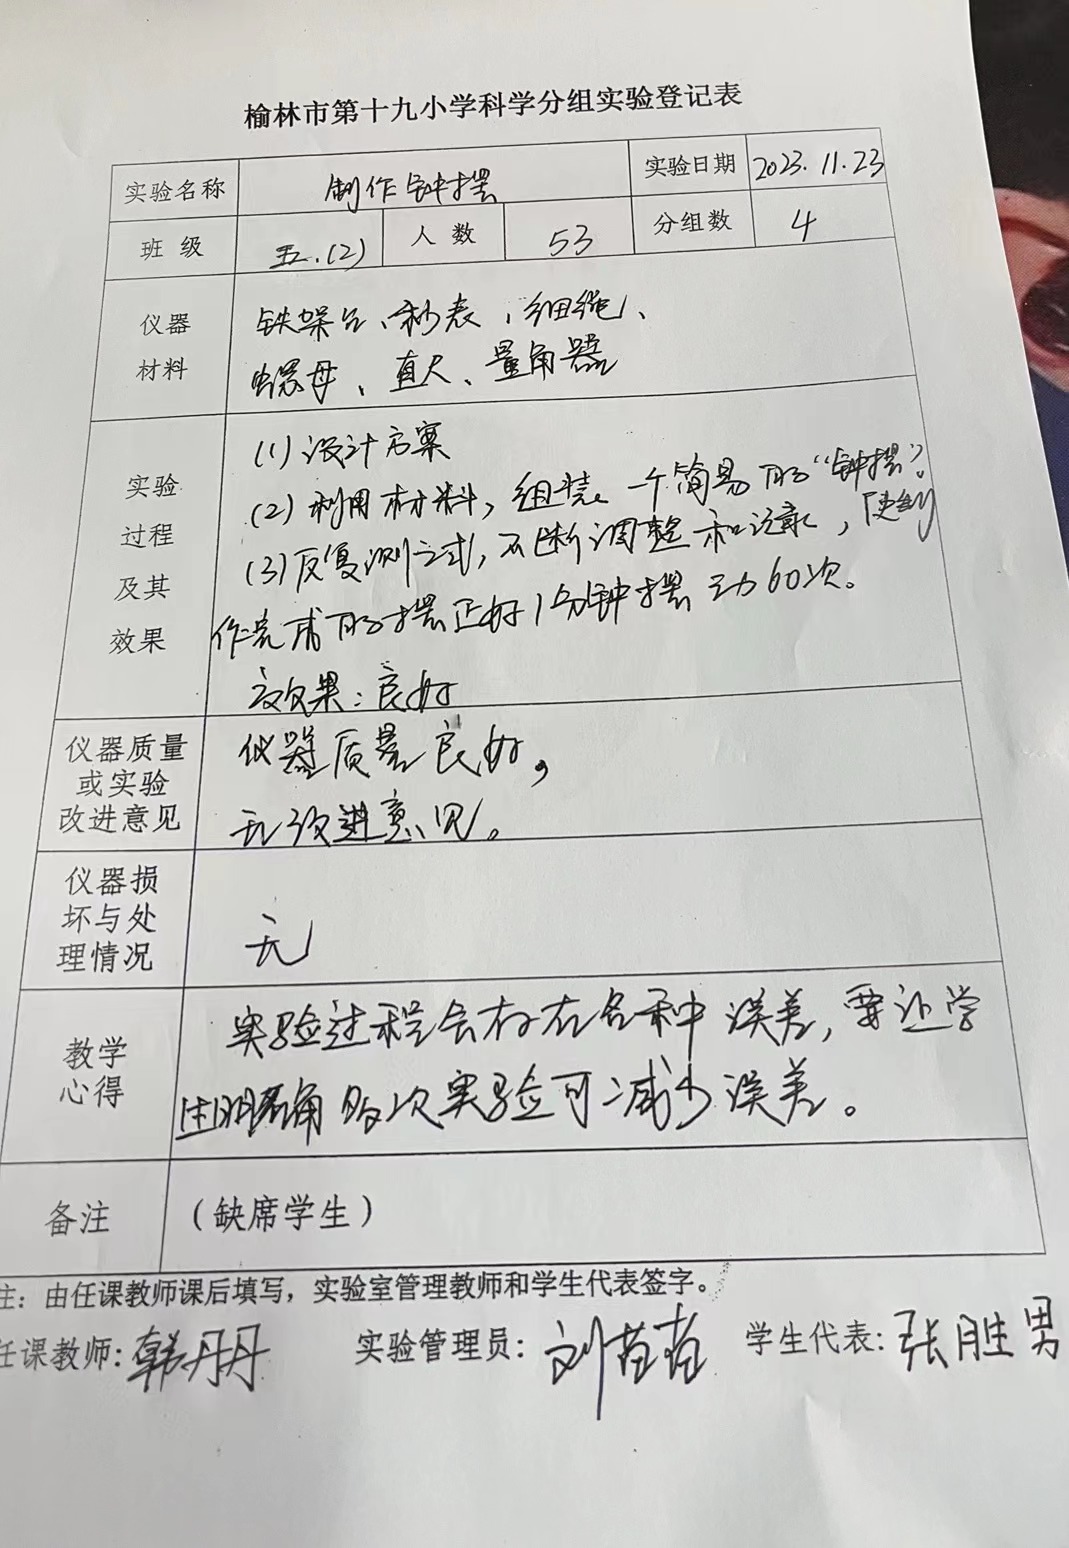 榆林市第十九小学科学分组实验登记表
实验名称 制作钟摆 实验日期 2023.11.23
班 级 五.(2) 人 数 53 分组数 4
仪器
材料
铁架台、秒表、细绳、
螺母、直尺、量角器
实验
过程
及其
效果
(1)设计方案
(2)利用材料,组装一个简易的“钟摆”。
(3)反复测试,不断调整和记录,使制
作完成的摆正好1分钟摆动60次。
效果:良好
仪器质量
或实验
改进意见
仪器质量良好,
无改进意见。
仪器损
坏与处
理情况
无
教学
心得
实验过程会存在各种误差,要让学
生明确多次实验可减少误差。
备注 (缺席学生)
注:由任课教师课后填写,实验室管理教师和学生代表签字。
任课教师:韩丹丹 实验管理员:刘苗苗 学生代表:张胜男